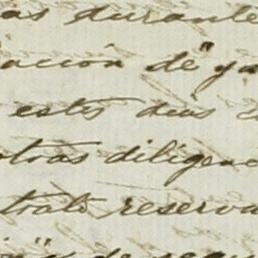 as durante
ación de "ya
estos dias
otras diligenc
trato reserva